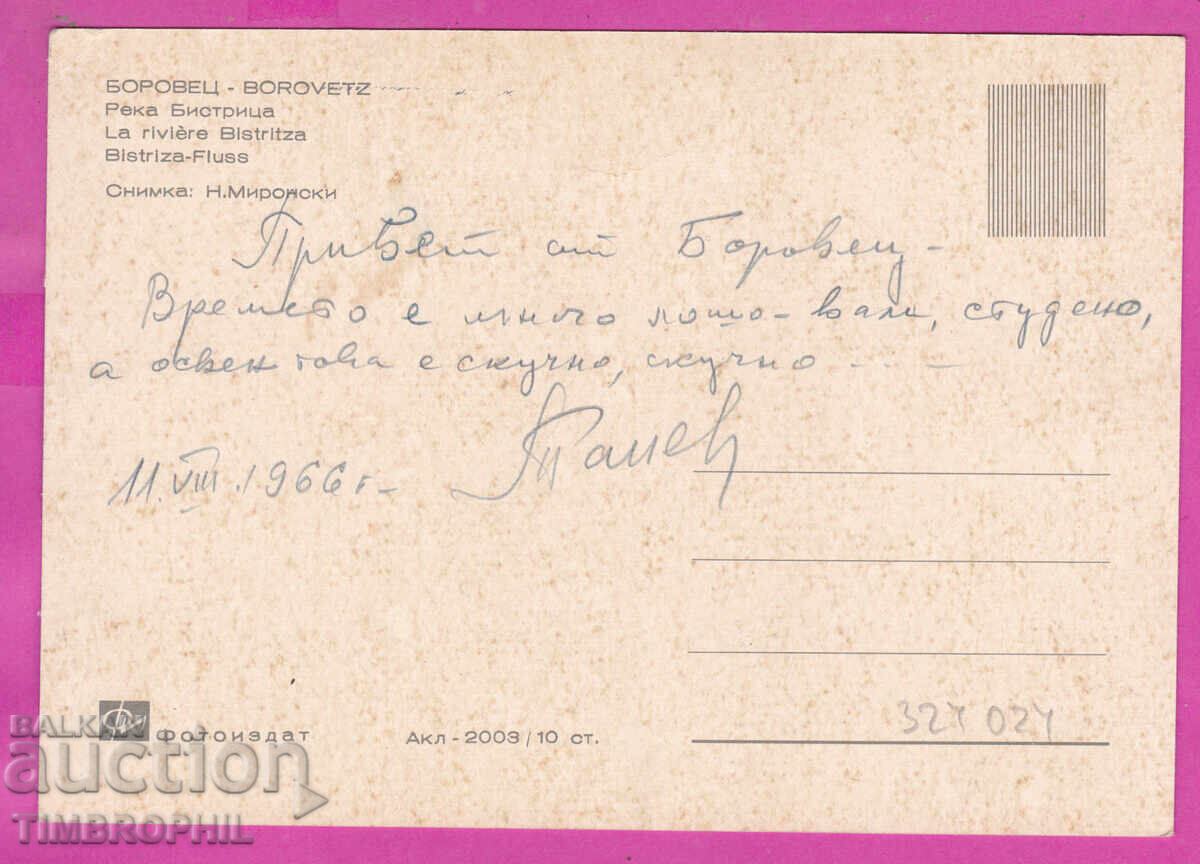 БОРОВЕЦ - BOROVETZ
Река Бистрица
La rivière Bistritza
Bistriza-Fluss
Снимка: Н.Миронски
Привет от Боровец -
Времето е много лошо - вали, студено,
а освен това е скучно, скучно . . . -
11.VIII.1966 г.
324 024
Фотоиздат
Акл - 2003/10 ст.
BALKAN
auction
TIMBROPHIL